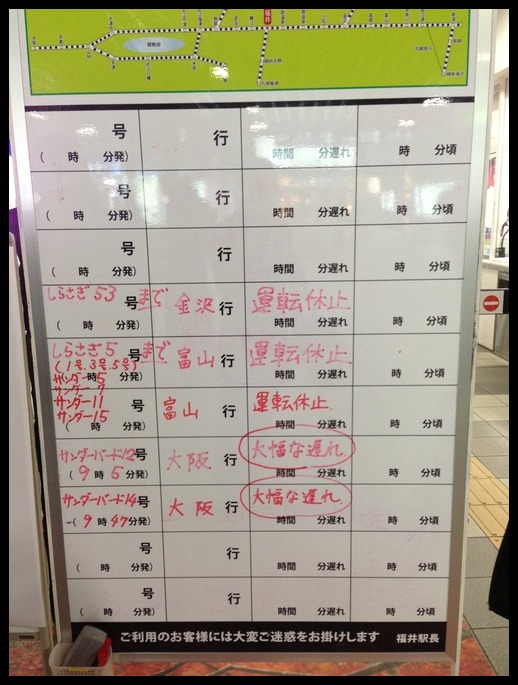 福井
号 行
( 時 分発) 時間 分遅れ 時 分頃
号 行
( 時 分発) 時間 分遅れ 時 分頃
号 行
( 時 分発) 時間 分遅れ 時 分頃
しらさぎ53号まで 金沢行 運転休止
( 時 分発) 時間 分遅れ 時 分頃
しらさぎ5号まで 富山行 運転休止.
(1号.3号.5号)
時間 分遅れ 時 分頃
サンダー5
サンダー11号 富山行 運転休止.
サンダー15
( 時 分発) 時間 分遅れ 時 分頃
サンダーバード12号 大阪行 大幅な遅れ
(9時5分発) 時間 分遅れ 時 分頃
サンダーバード14号 大阪行 大幅な遅れ.
(9時47分発) 時間 分遅れ 時 分頃
号 行
( 時 分発) 時間 分遅れ 時 分頃
号 行
( 時 分発) 時間 分遅れ 時 分頃
ご利用のお客様には大変ご迷惑をお掛けします 福井駅長